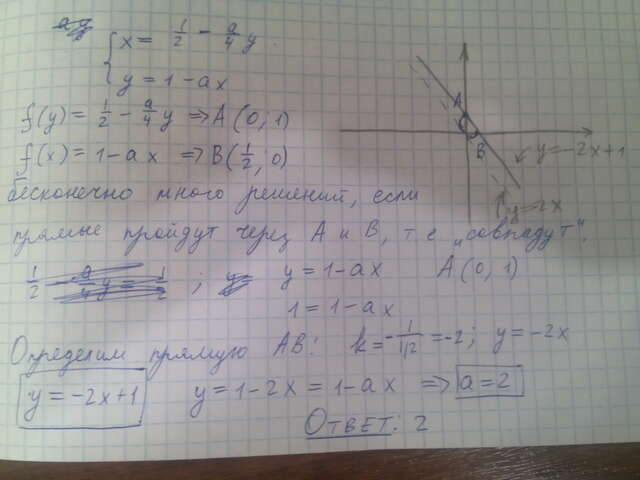 x = 1/2 - a/4 y
y = 1 - ax
f(y) = 1/2 - a/4 y => A(0; 1)
f(x) = 1 - ax => B(1/2; 0)
A
B
y = -2x+1
y = -2x
бесконечно много решений, если
прямые пройдут через A и B, т.е „совпадут".
1/2 - a/4 y = 1/2 ; y = 1 - ax A(0, 1)
1 = 1 - ax
Определим прямую AB: k = -1/1/2 = -2; y = -2x
y = -2x+1 y = 1 - 2x = 1 - ax => a = 2
Ответ: 2